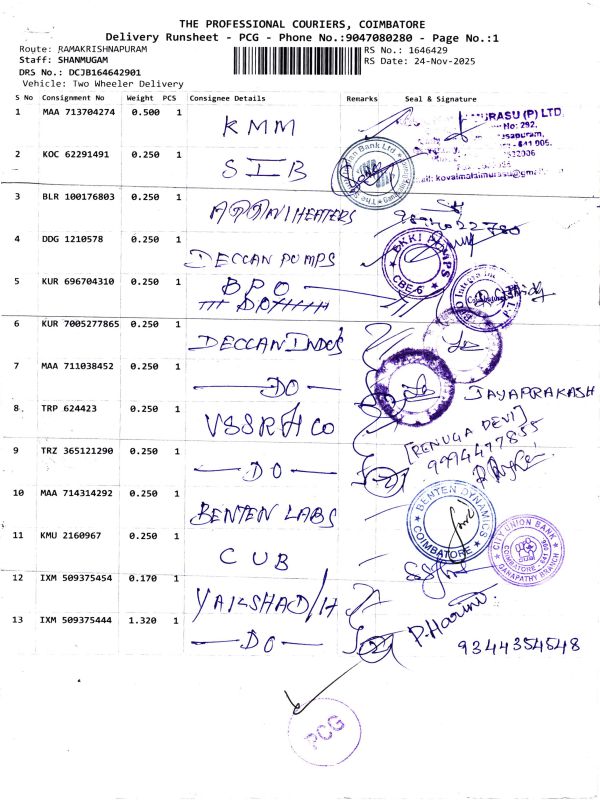 THE PROFESSIONAL COURIERS, COIMBATORE
Delivery Runsheet - PCG - Phone No.:9047080280 - Page No.:1
Route: RAMAKRISHNAPURAM
RS No.: 1646429
Staff: SHANMUGAM
RS Date: 24-Nov-2025
DRS No.: DCJB164642901
Vehicle: Two Wheeler Delivery
S No Consignment No Weight PCS Consignee Details Remarks Seal & Signature
1 MAA 713704274 0.500 1 KMM
URASU (P) LTD.
No: 292,
2 KOC 62291491 0.250 1 SIB
3 BLR 100176803 0.250 1 HEATERS
4 DDG 1210578 0.250 1 DECCAN PUMPS
CBE-6
5 KUR 696704310 0.250 1 BPO
6 KUR 7005277865 0.250 1 DECCAN INDUS
7 MAA 711038452 0.250 1 DO
JAYAPRAKASH
8 TRP 624423 0.250 1 VSSRH CO
[RENUGA DEVI]
9994477855
9 TRZ 365121290 0.250 1 DO
10 MAA 714314292 0.250 1 BENTEN LABS
BENTEN DYNAMICS COIMBATORE
11 KMU 2160967 0.250 1 CUB
CITY UNION BANK
GANAPATHY BRANCH
12 IXM 509375454 0.170 1
P. Harini
13 IXM 509375444 1.320 1 DO
9344354548
PCG